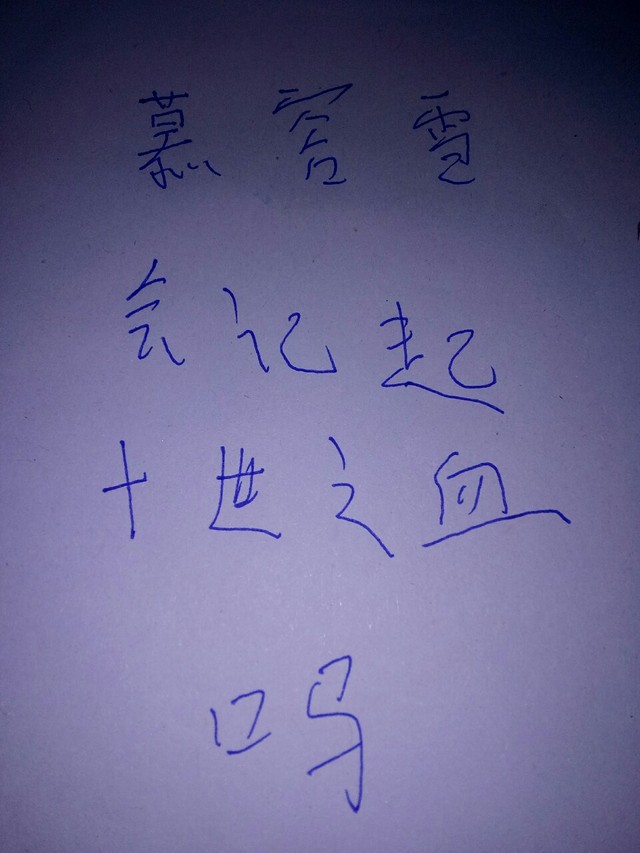 慕容雪
会记起
十世之血
吗